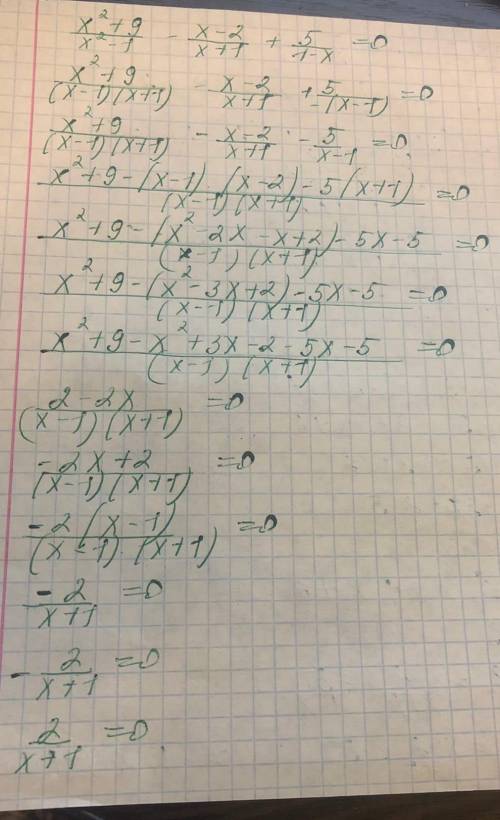 (x²+9)/(x²-1) - (x-2)/(x+1) + 5/(1-x) =0
(x²+9)/((x-1)(x+1)) - (x-2)/(x+1) + 5/(-(x-1)) =0
(x²+9)/((x-1)(x+1)) - (x-2)/(x+1) - 5/(x-1) =0
(x²+9-(x-1)·(x-2)-5(x+1))/((x-1)(x+1)) =0
(x²+9-(x²-2x-x+2)-5x-5)/((x-1)(x+1)) =0
(x²+9-(x²-3x+2)-5x-5)/((x-1)(x+1)) =0
(x²+9-x²+3x-2-5x-5)/((x-1)(x+1)) =0
(2-2x)/((x-1)(x+1)) =0
(-2x+2)/((x-1)(x+1)) =0
(-2(x-1))/((x-1)·(x+1)) =0
(-2)/(x+1) =0
-2/(x+1) =0
2/(x+1) =0